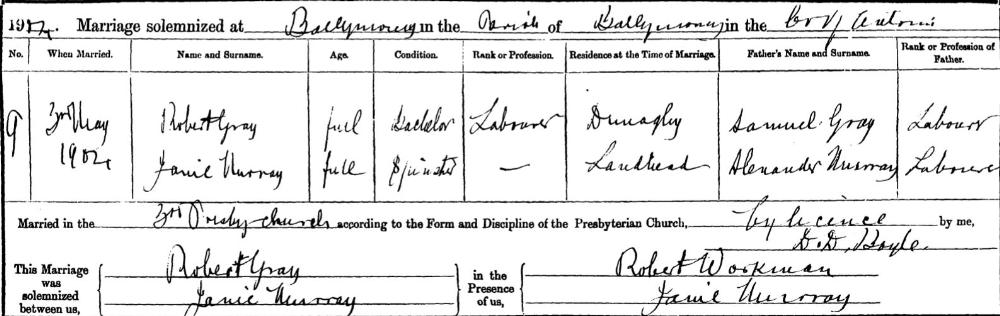 1904. Marriage solemnized at Ballymoney in the Parish of Ballymoney in the Co of Antrim
No. When Married. Name and Surname. Age. Condition. Rank or Profession. Residence at the Time of Marriage. Father's Name and Surname. Rank or Profession of Father.
9 3rd May 1904 Robert Gray full Bachelor Labourer Dunaghy Samuel Gray Labourer
Janie Murray full Spinster — Landhead Alexander Murray Labourer
Married in the 3rd Presby church according to the Form and Discipline of the Presbyterian Church, by licence by me,
D. D. Boyle.
This Marriage was solemnized between us, Robert Gray in the Presence of us, Robert Workman
Janie Murray Janie Murray